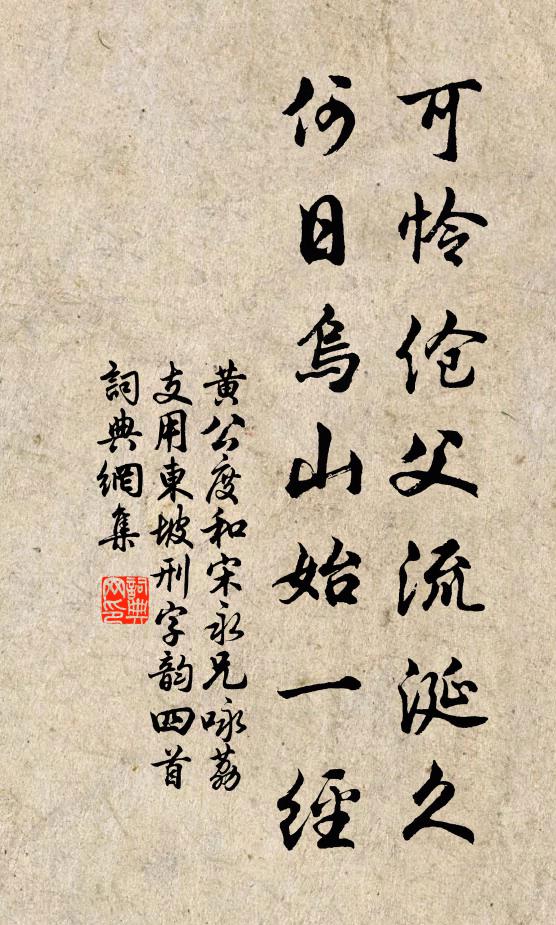 可怜伧父流涎久
何日烏山始一經
黄公度和宋永兄咏荔
支用東坡刑字韵四首
詞典網集
詞典网印